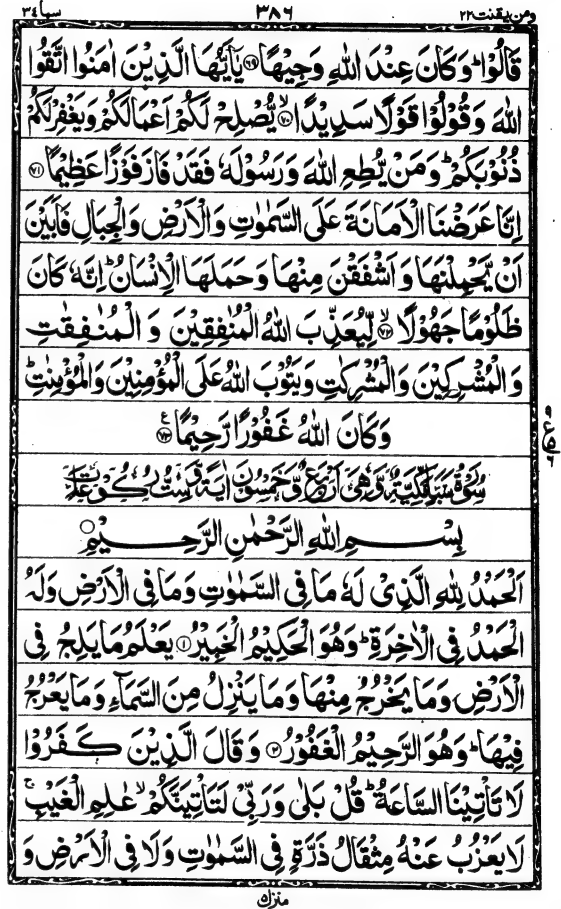 ومن یقنت ۲۲ ۳۸۶ سبا ۳۴
قَالُوْا ؕ وَكَانَ عِنْدَ اللّٰهِ وَجِيْهًا ۶۹ يٰۤاَيُّهَا الَّذِيْنَ اٰمَنُوا اتَّقُوا
اللّٰهَ وَقُوْلُوْا قَوْلًا سَدِيْدًا ۷۰ ۙ يُّصْلِحْ لَكُمْ اَعْمَالَكُمْ وَيَغْفِرْ لَكُمْ
ذُنُوْبَكُمْ ؕ وَمَنْ يُّطِعِ اللّٰهَ وَرَسُوْلَهٗ فَقَدْ فَازَ فَوْزًا عَظِيْمًا ۷۱
اِنَّا عَرَضْنَا الْاَمَانَةَ عَلَى السَّمٰوٰتِ وَالْاَرْضِ وَالْجِبَالِ فَاَبَيْنَ
اَنْ يَّحْمِلْنَهَا وَاَشْفَقْنَ مِنْهَا وَحَمَلَهَا الْاِنْسَانُ ؕ اِنَّهٗ كَانَ
ظَلُوْمًا جَهُوْلًا ۷۲ ۙ لِّيُعَذِّبَ اللّٰهُ الْمُنٰفِقِيْنَ وَالْمُنٰفِقٰتِ
وَالْمُشْرِكِيْنَ وَالْمُشْرِكٰتِ وَيَتُوْبَ اللّٰهُ عَلَى الْمُؤْمِنِيْنَ وَالْمُؤْمِنٰتِ ؕ
وَكَانَ اللّٰهُ غَفُوْرًا رَّحِيْمًا ۷۳ ع
سُوْرَةُ سَبَاٍ مَكِّيَّةٌ وَّهِىَ اَرْبَعٌ وَّخَمْسُوْنَ اٰيَةً وَّسِتُّ رُكُوْعَاتٍ
بِسْمِ اللّٰهِ الرَّحْمٰنِ الرَّحِيْمِ
اَلْحَمْدُ لِلّٰهِ الَّذِيْ لَهٗ مَا فِى السَّمٰوٰتِ وَمَا فِى الْاَرْضِ وَلَهُ
الْحَمْدُ فِى الْاٰخِرَةِ ؕ وَهُوَ الْحَكِيْمُ الْخَبِيْرُ ۱ يَعْلَمُ مَا يَلِجُ فِى
الْاَرْضِ وَمَا يَخْرُجُ مِنْهَا وَمَا يَنْزِلُ مِنَ السَّمَآءِ وَمَا يَعْرُجُ
فِيْهَا ؕ وَهُوَ الرَّحِيْمُ الْغَفُوْرُ ۲ وَقَالَ الَّذِيْنَ كَفَرُوْا
لَا تَاْتِيْنَا السَّاعَةُ ؕ قُلْ بَلٰى وَرَبِّيْ لَتَاْتِيَنَّكُمْ ۙ عٰلِمِ الْغَيْبِ ۚ
لَا يَعْزُبُ عَنْهُ مِثْقَالُ ذَرَّةٍ فِى السَّمٰوٰتِ وَلَا فِى الْاَرْضِ وَ